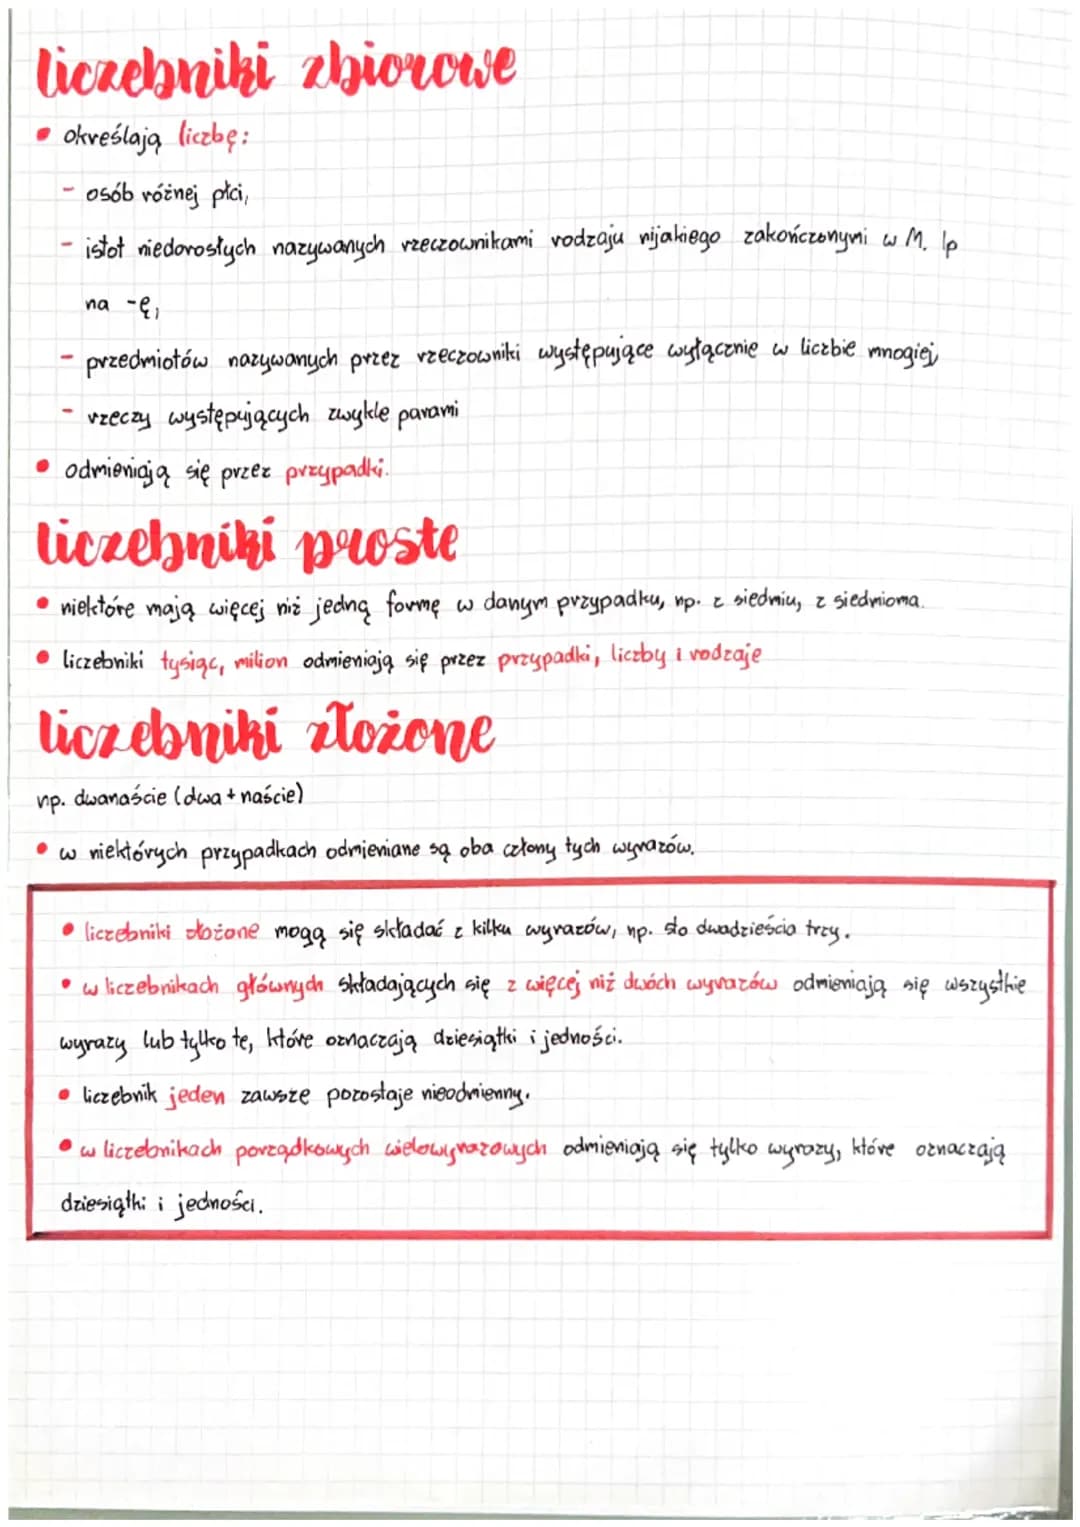 liczebniki zbiorowe
• określają liczbę:
- osób różnej płci,
- istot niedorosłych nazywanych rzeczownikami rodzaju nijakiego zakończonymi w M. lp
na -ę,
- przedmiotów nazywanych przez rzeczowniki występujące wyłącznie w liczbie mnogiej,
- rzeczy występujących zwykle parami
• odmieniają się przez przypadki.
liczebniki proste
• niektóre mają więcej niż jedną formę w danym przypadku, np. z siedmiu, z siedmioma.
• liczebniki tysiąc, milion odmieniają się przez przypadki, liczby i rodzaje
liczebniki złożone
np. dwanaście (dwa + naście)
• w niektórych przypadkach odmieniane są oba człony tych wyrazów.
• liczebniki złożone mogą się składać z kilku wyrazów, np. sto dwadzieścia trzy.
• w liczebnikach głównych składających się z więcej niż dwóch wyrazów odmieniają się wszystkie
wyrazy lub tylko te, które oznaczają dziesiątki i jedności.
• liczebnik jeden zawsze pozostaje nieodmienny.
• w liczebnikach porządkowych wielowyrazowych odmieniają się tylko wyrazy, które oznaczają
dziesiątki i jedności.